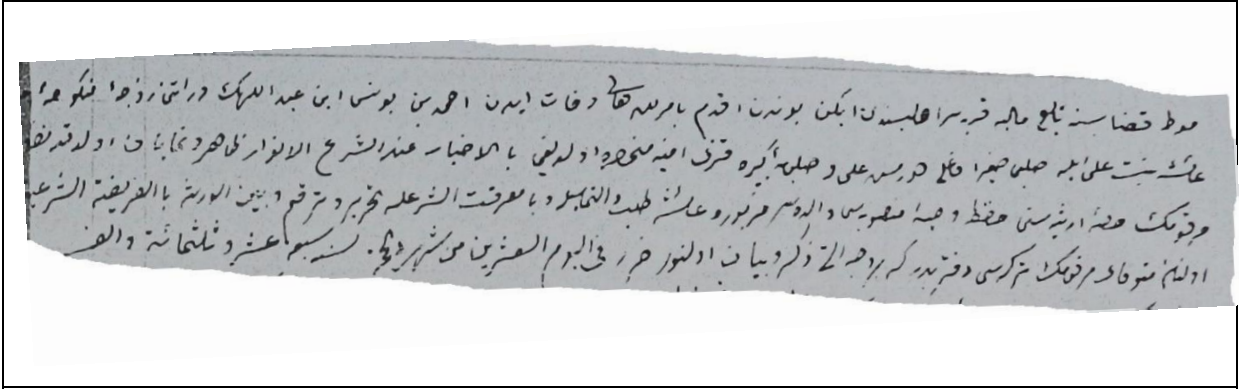 موط قضاسنه تابع ماجه قريه‌سى اهليسندن ايكن بوندن اقدم بامر الله تعالى وفات ايدن احمد بن يونس ابن عبد اللهك وراثتى زوجه منكوحه
عائشه بنت على ايله صلبى صغير اوغلى على وصلبيه كبيره قزى امينه منحصره اولديغى بالاخبار عند الشرع الانور ظاهر ونمايان اولدقدنصكره
مرقومك حصهٔ ارثيه‌سنى حفظ و والده‌سى مزبوره عائشه طلب والتماسيله وبا معرفت الشرعله تحرير وترقيم وبين الورثه بالفريضة الشرعيه
اولنان متوفاى مرقومك تركه‌سى دفتريدر كه بروجه اتى ذكر وبيان اولنور حرر فى اليوم العشرين من شهر لسنه سبع عشر وثلثمائة والف